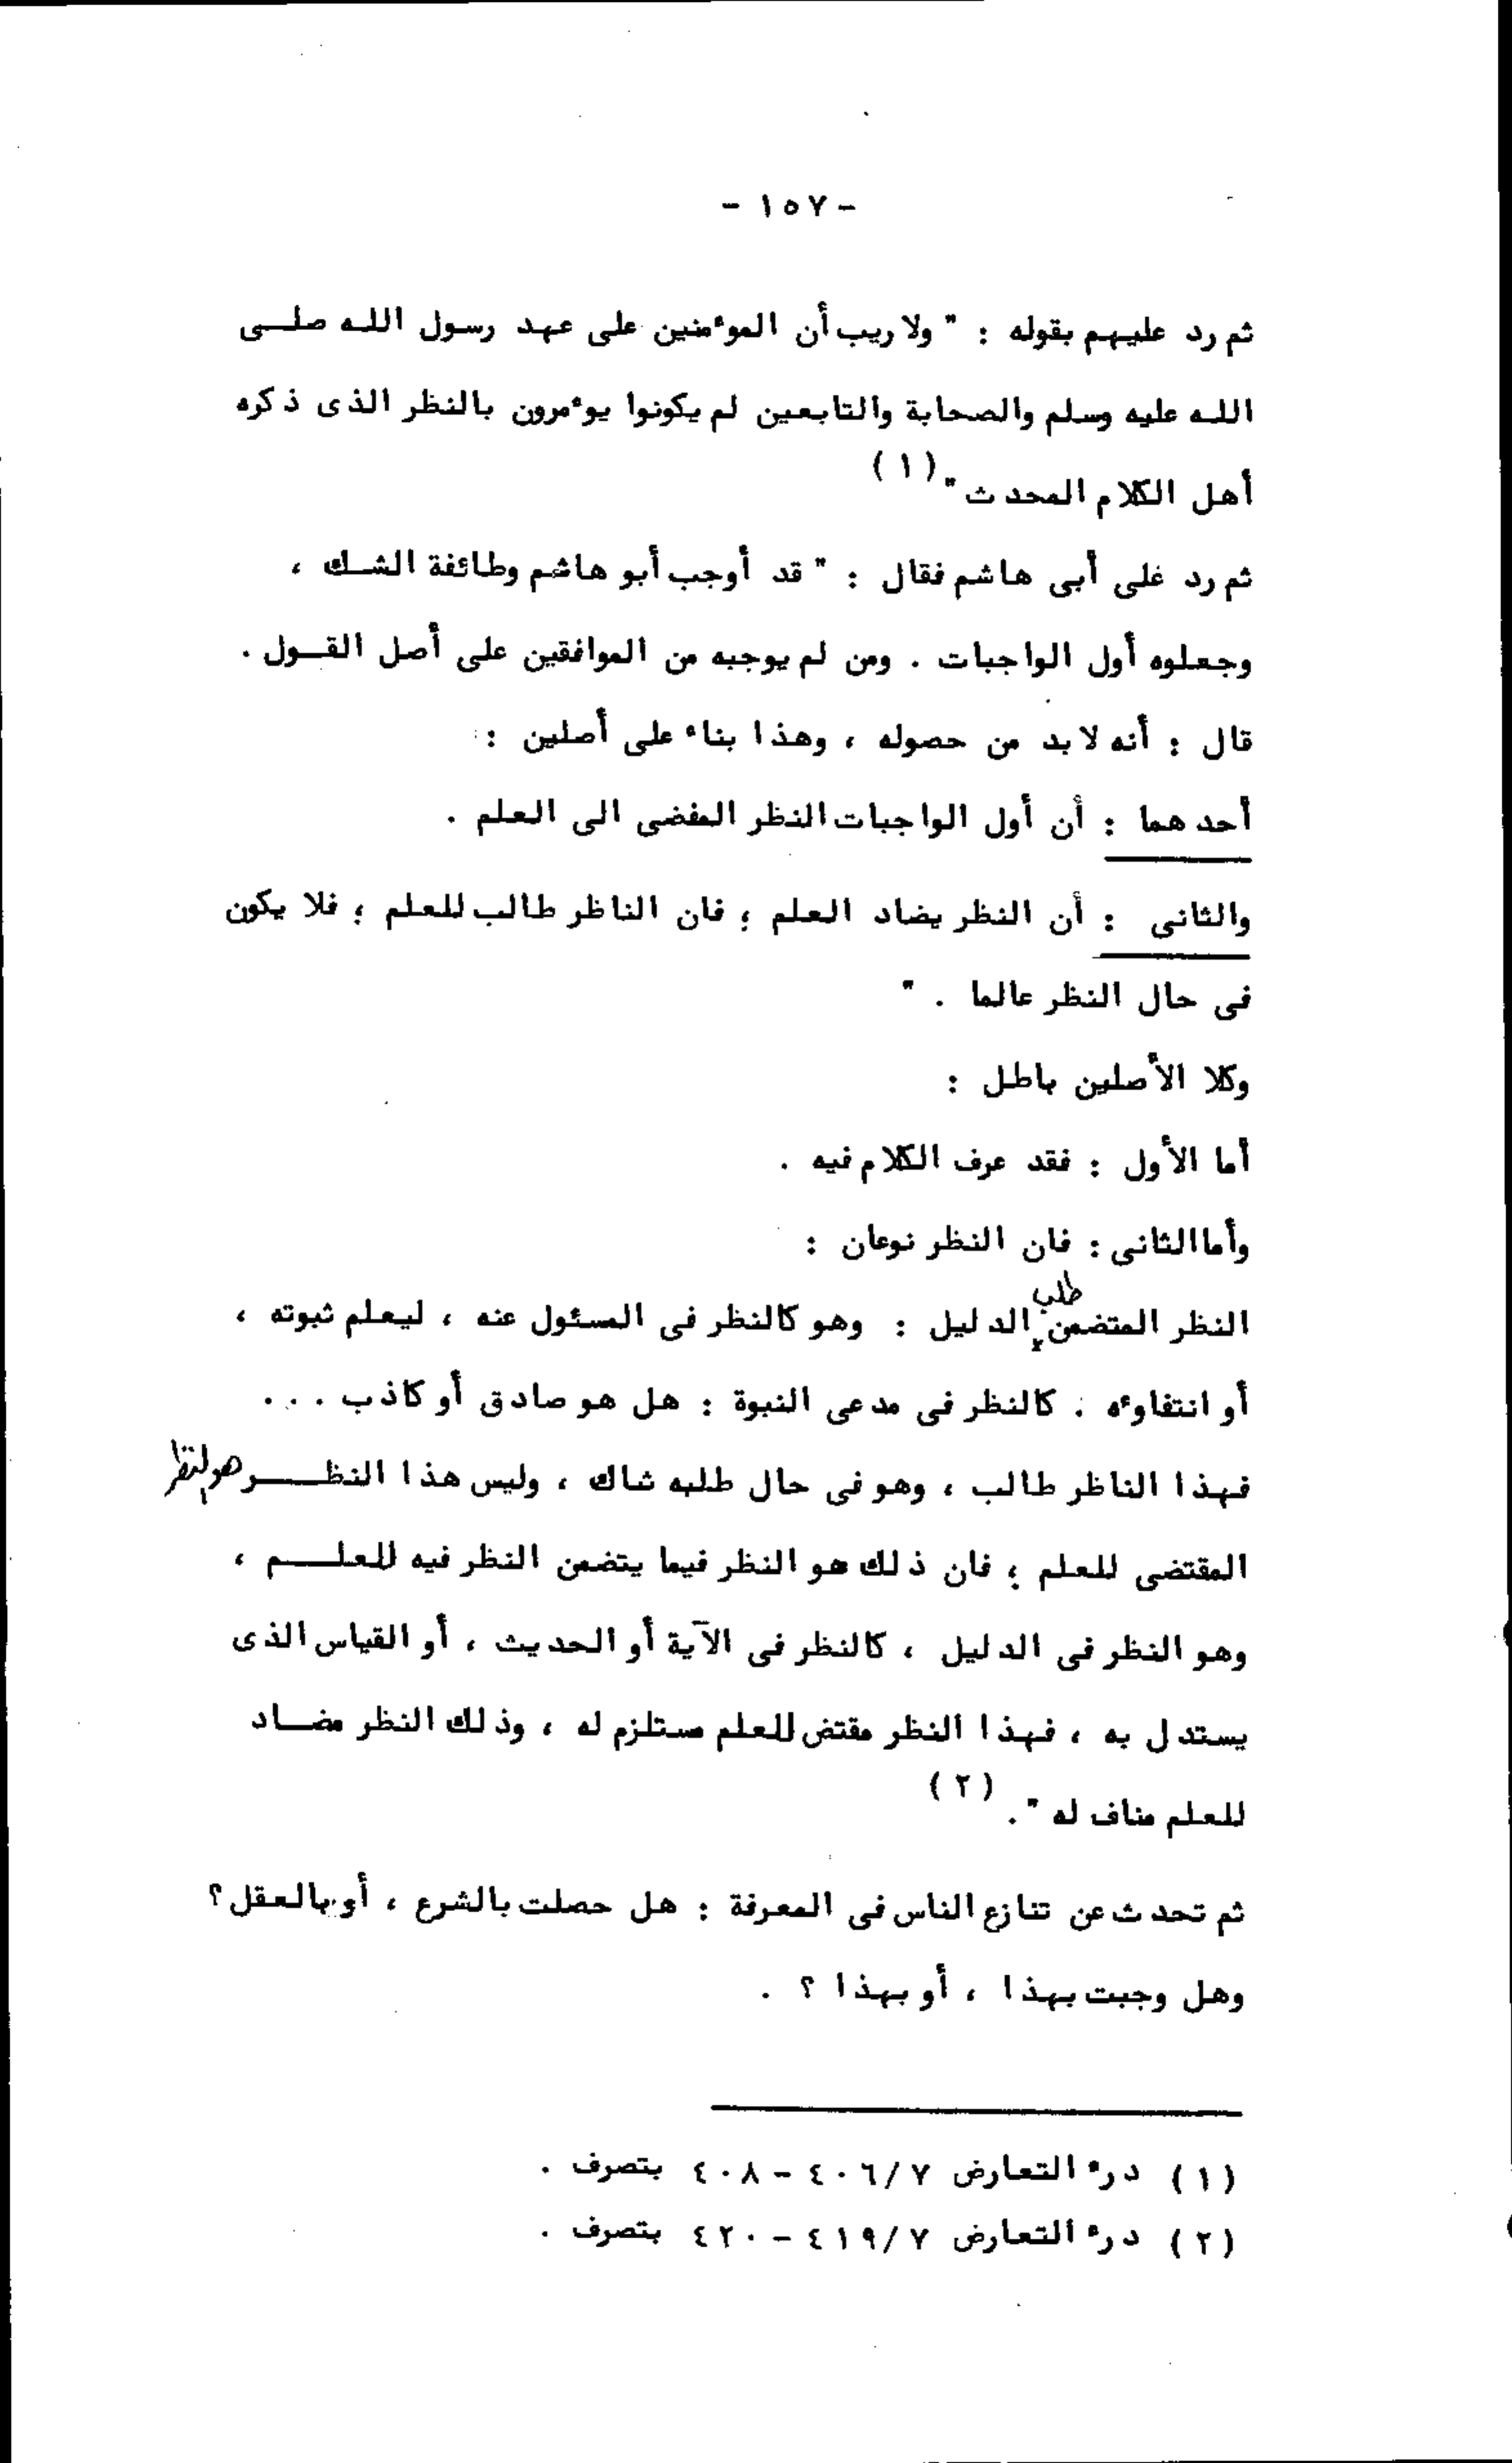 - ١٥٧ -
ثم رد عليهم بقوله : " ولا ريب أن الموءمنين على عهد رسول الله صلى
الله عليه وسلم والصحابة والتابعين لم يكونوا يوءمرون بالنظر الذى ذكره
أهل الكلام المحدث " (١)
ثم رد على أبى هاشم فقال : " قد أوجب أبو هاشم وطائفة الشك ،
وجعلوه أول الواجبات . ومن لم يوجبه من الموافقين على أصل القول .
قال : أنه لا بد من حصوله ، وهذا بناء على أصلين :
أحدهما : أن أول الواجبات النظر المفضى الى العلم .
والثانى : أن النظر يضاد العلم ؛ فان الناظر طالب للعلم ؛ فلا يكون
فى حال النظر عالما . "
وكلا الأصلين باطل :
أما الأول : فقد عرف الكلام فيه .
وأما الثانى : فان النظر نوعان :
النظر المتضمن طلب الدليل : وهو كالنظر فى المسئول عنه ، ليعلم ثبوته ،
أو انتفاوءه . كالنظر فى مدعى النبوة : هل هو صادق أو كاذب ...
فهذا الناظر طالب ، وهو فى حال طلبه شاك ، وليس هذا النظر هو النظر
المقتضى للعلم ؛ فان ذلك هو النظر فيما يتضمن النظر فيه للعلم ،
وهو النظر فى الدليل ، كالنظر فى الآية أو الحديث ، أو القياس الذى
يستدل به ، فهذا النظر مقتض للعلم مستلزم له ، وذلك النظر مضاد
للعلم مناف له " . (٢)
ثم تحدث عن تنازع الناس فى المعرفة : هل حصلت بالشرع ، أو بالعقل ؟
وهل وجبت بهذا ، أو بهذا ؟ .
(١) درء التعارض ٧/ ٤٠٦ - ٤٠٨ بتصرف .
(٢) درء التعارض ٧/ ٤١٩ - ٤٢٠ بتصرف .